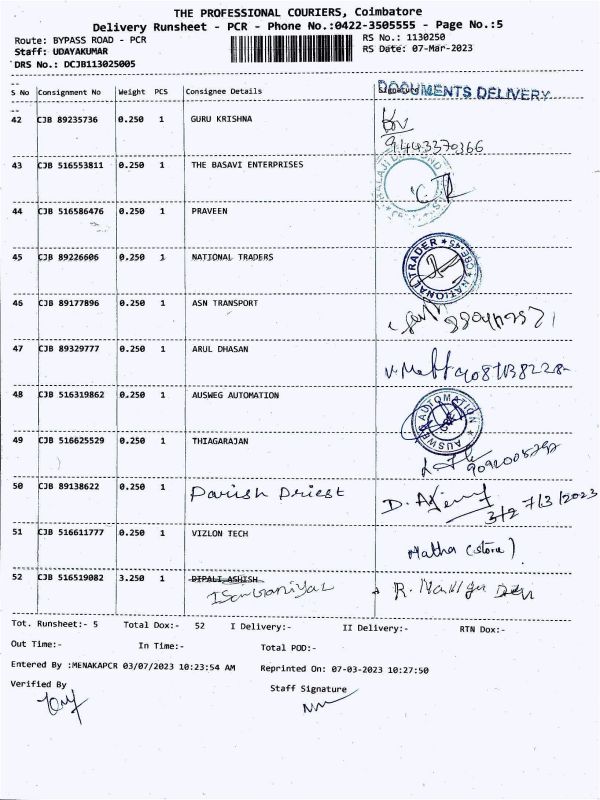 THE PROFESSIONAL COURIERS, Coimbatore
Delivery Runsheet - PCR - Phone No.:0422-3505555 - Page No.:5
Route: BYPASS ROAD - PCR RS No.: 1130250
Staff: UDAYAKUMAR RS Date: 07-Mar-2023
DRS No.: DCJB113025005
S No Consignment No Weight PCS Consignee Details Signature
DOCUMENTS DELIVERY
42 CJB 89235736 0.250 1 GURU KRISHNA
9443370366
43 CJB 516553811 0.250 1 THE BASAVI ENTERPRISES
44 CJB 516586476 0.250 1 PRAVEEN
45 CJB 89226606 0.250 1 NATIONAL TRADERS
NATIONAL TRADER
46 CJB 89177896 0.250 1 ASN TRANSPORT
47 CJB 89329777 0.250 1 ARUL DHASAN
48 CJB 516319862 0.250 1 AUSWEG AUTOMATION
AUSWEG AUTOMATION
49 CJB 516625529 0.250 1 THIAGARAJAN
50 CJB 89138622 0.250 1 Parish Priest
7/3/2023
51 CJB 516611777 0.250 1 VIZLON TECH
(store)
52 CJB 516519082 3.250 1 DIPALI ASHISH
Tot. Runsheet:- 5 Total Dox:- 52 I Delivery:- II Delivery:- RTN Dox:-
Out Time:- In Time:- Total POD:-
Entered By :MENAKAPCR 03/07/2023 10:23:54 AM Reprinted On: 07-03-2023 10:27:50
Verified By Staff Signature